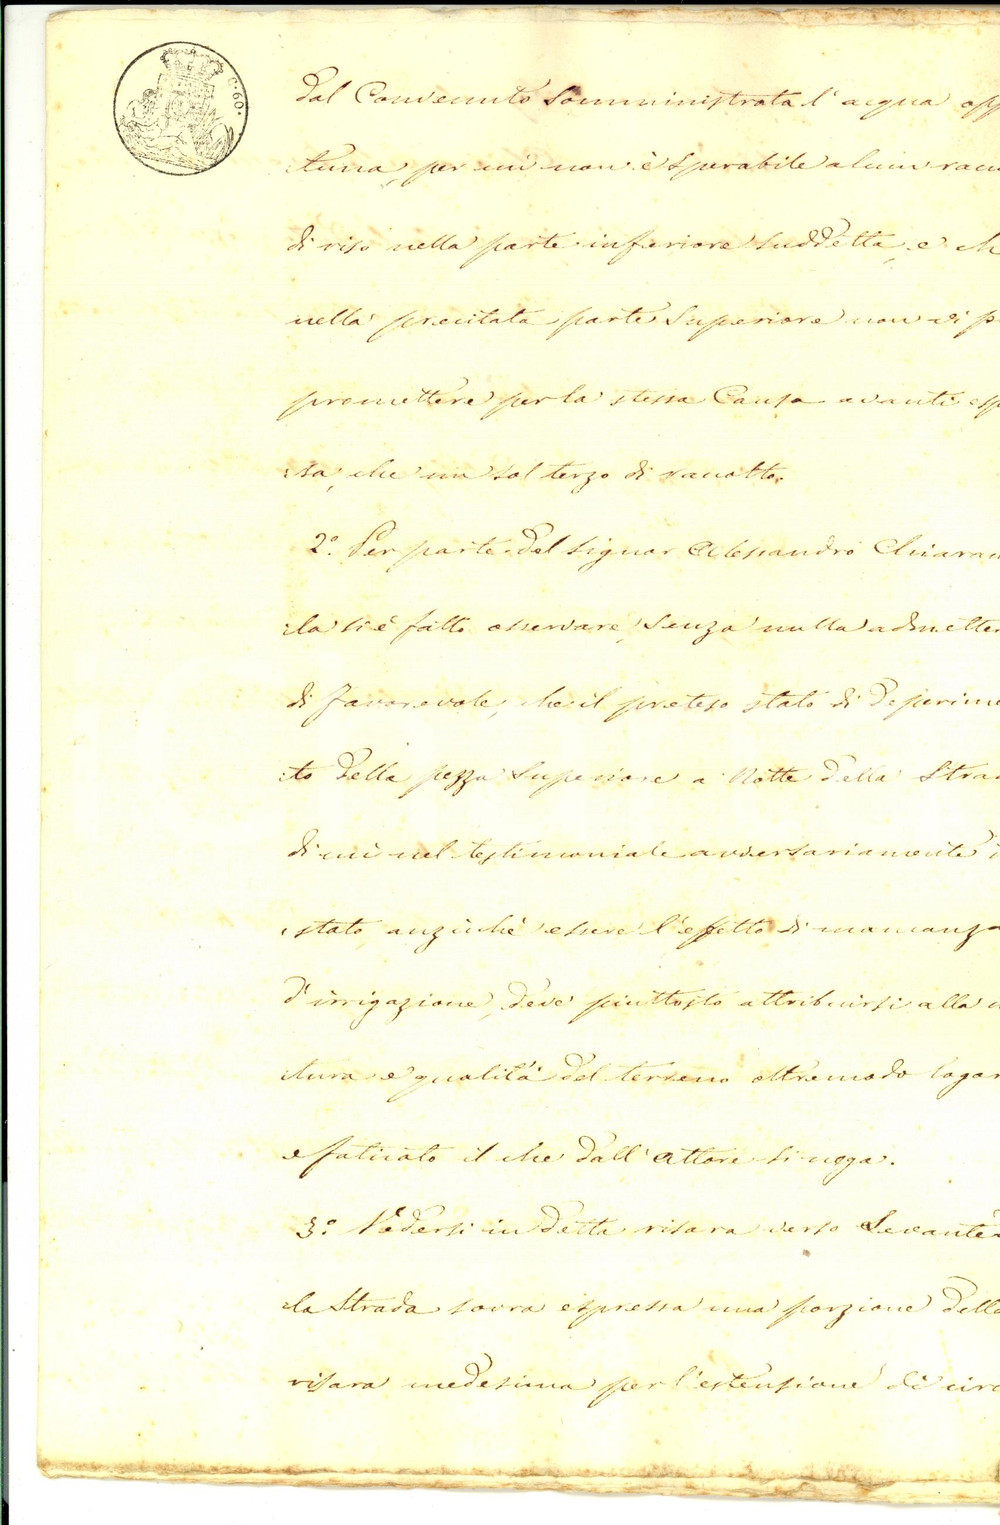 C. 60.
dal Convenuto Somministrata l'acqua opp
:tuna, per cui non è sperabile alcun racc
di riso nella parte inferiore suddetta, e ch
nella precitata parte Superiore non si p
promettere per la stessa Causa avanti esp
:sa, che un sol terzo di racolto.
2.° Per parte del Signor Alessandro Chiara
:la si è fatto osservare, senza nulla admetter
di favorevole, che il preteso stato di deperime
:to della pezza Superiore a Notte della Stra
di cui nel testimoniale avversariamente
:stato, anzichè essere l'effetto di mancanza
d'irrigazione, deve piuttosto attribuirsi alla
:tura e qualità del terreno oltremodo logor
e faticato il che dall'Attore si nega.
3.° Vedersi in detta risara verso Levante
:la Strada sovra espressa una porzione della
risara medesima per l'estensione di circ